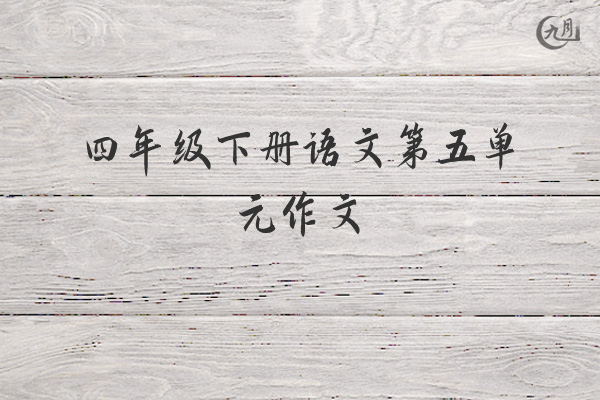 九月
四年级下册语文第五单
元作文